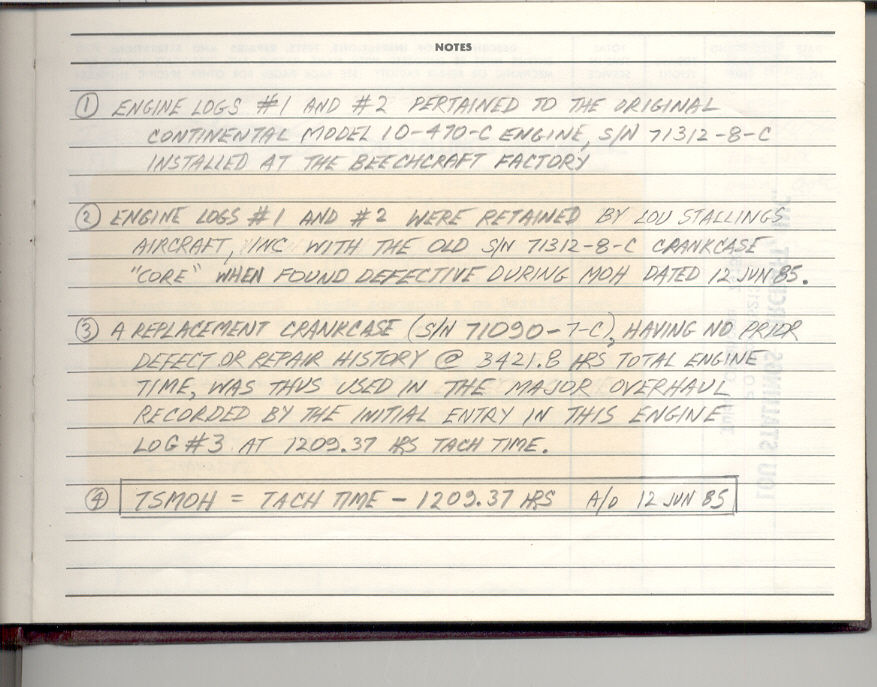 NOTES
① ENGINE LOGS #1 AND #2 PERTAINED TO THE ORIGINAL
CONTINENTAL MODEL IO-470-C ENGINE, S/N 71312-8-C
INSTALLED AT THE BEECHCRAFT FACTORY
② ENGINE LOGS #1 AND #2 WERE RETAINED BY LOU STALLINGS
AIRCRAFT, INC WITH THE OLD S/N 71312-8-C CRANKCASE
"CORE" WHEN FOUND DEFECTIVE DURING MOH DATED 12 JUN 85.
③ A REPLACEMENT CRANKCASE (S/N 71090-7-C), HAVING NO PRIOR
DEFECT OR REPAIR HISTORY @ 3421.8 HRS TOTAL ENGINE
TIME, WAS THUS USED IN THE MAJOR OVERHAUL
RECORDED BY THE INITIAL ENTRY IN THIS ENGINE
LOG #3 AT 1209.37 HRS TACH TIME.
④ TSMOH = TACH TIME - 1209.37 HRS A/O 12 JUN 85